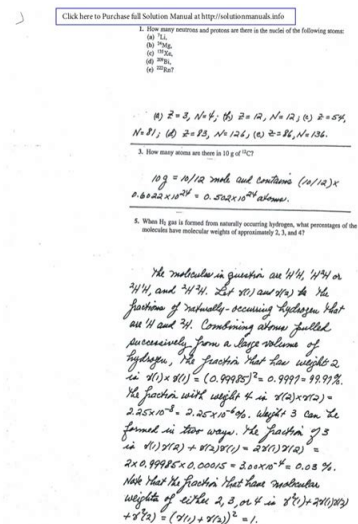 Click here to Purchase full Solution Manual at http://solutionmanuals.info
1. How many neutrons and protons are there in the nuclei of the following atoms:
(a) ⁷Li,
(b) ²⁴Mg,
(c) ¹³⁵Xe,
(d) ²⁰⁹Bi,
(e) ²²²Rn?
(a) Z=3, N=4; (b) Z=12, N=12; (c) Z=54,
N=81; (d) Z=83, N=126; (e) Z=86, N=136.
3. How many atoms are there in 10 g of ¹²C?
10g = 10/12 mole and contains (10/12)x
0.6022x10²⁴ = 0.502x10²⁴ atoms.
5. When H₂ gas is formed from naturally occurring hydrogen, what percentages of the
molecules have molecular weights of approximately 2, 3, and 4?
The molecules in question are ¹H¹H, ¹H²H or
²H¹H, and ²H²H. Let γ(1) and γ(2) be the
fractions of naturally-occuring hydrogen that
are ¹H and ²H. Combining atoms pulled
successively from a large volume of
hydrogen, the fraction that has weight 2
is γ(1)xγ(1) = (0.99985)² = 0.9997 = 99.97%.
The fraction with weight 4 is γ(2)xγ(2) =
2.25x10⁻⁸ = 2.25x10⁻⁶%. Weight 3 can be
formed in two ways. The fraction of 3
is γ(1)γ(2) + γ(2)γ(1) = 2γ(1)γ(2) =
2x0.99985x0.00015 = 3.00x10⁻⁴ = 0.03 %.
Note that the fraction that have molecular
weights of either 2, 3, or 4 is γ²(1)+2γ(1)γ(2)
+γ²(2) = (γ(1)+γ(2))² = 1.